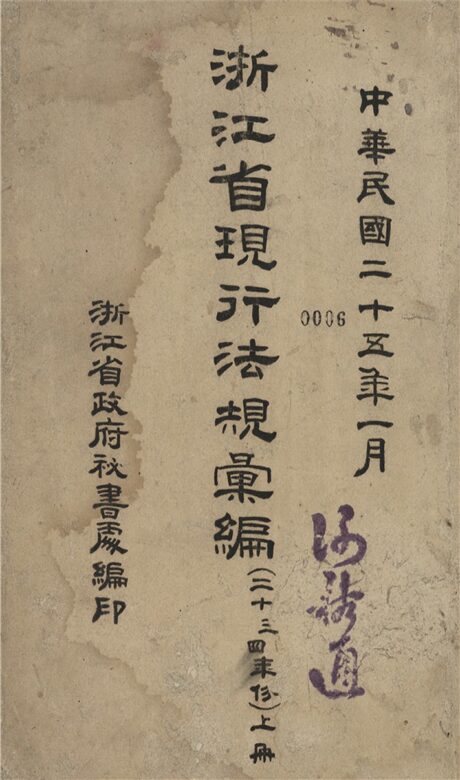 中華民國二十五年一月
0006
浙江省現行法規彙編(二十三四年份)上冊
浙江省政府祕書處編印